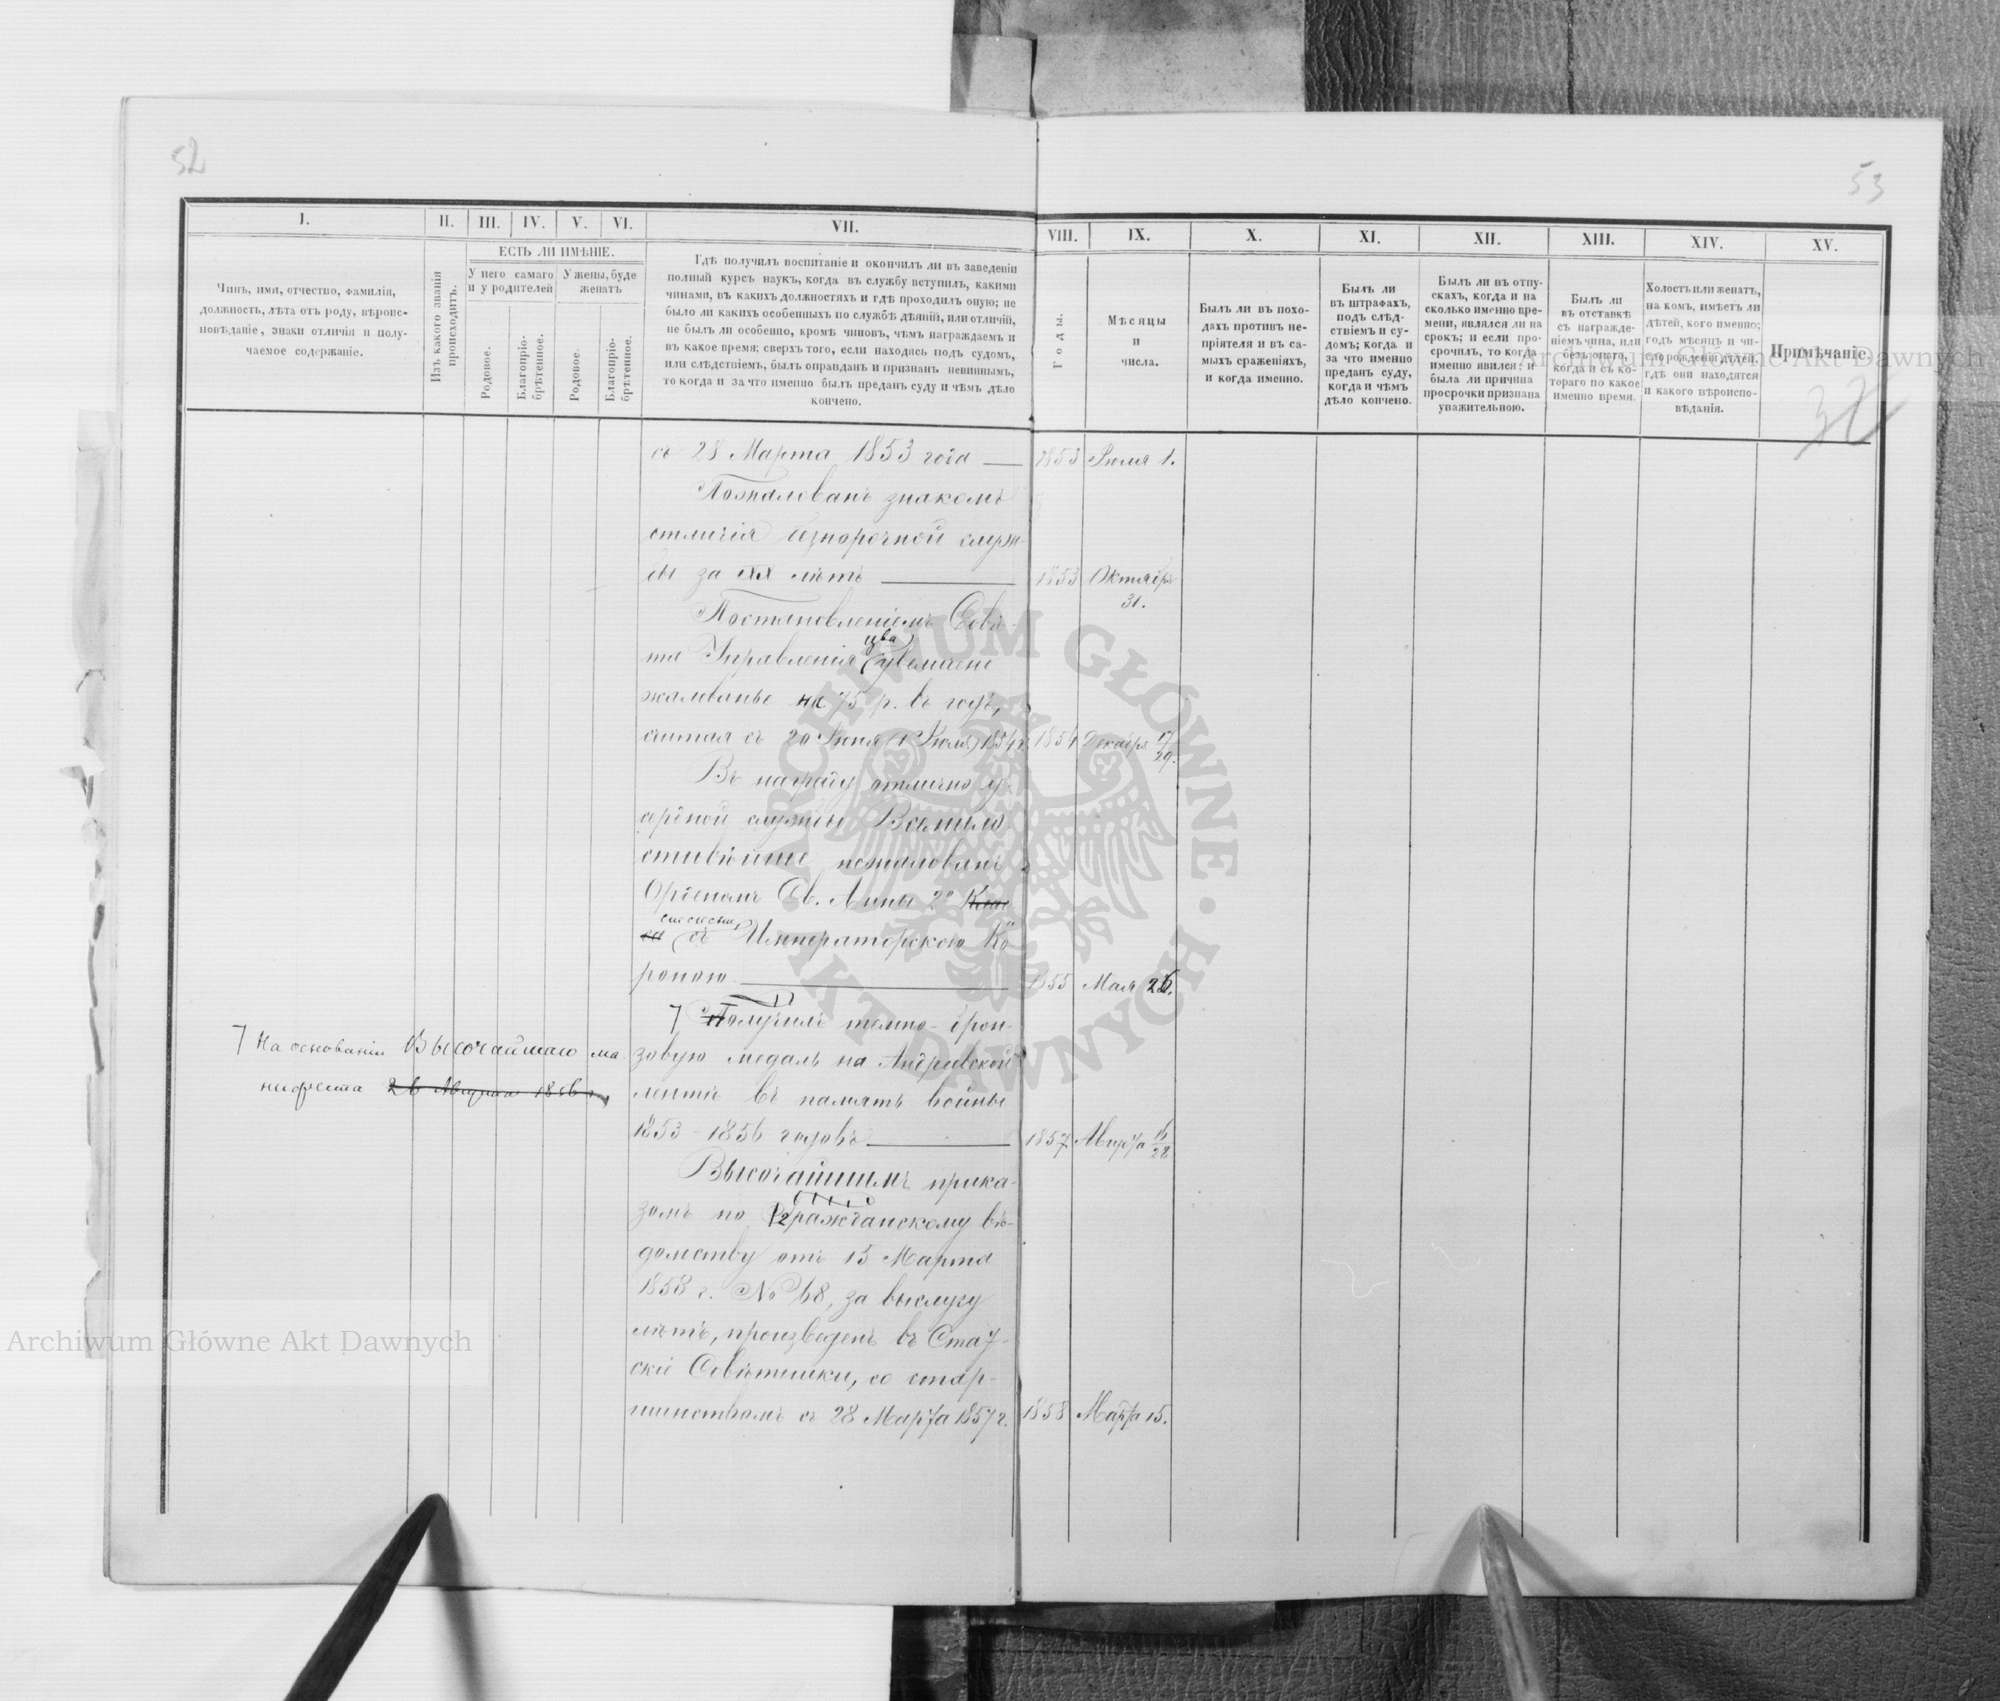 52
53
I.
II.
III.
IV.
V.
VI.
VII.
VIII.
IX.
X.
XI.
XII.
XIII.
XIV.
XV.
Чинъ, имя, отчество, фамилія,
должность, лѣта отъ роду, вѣроис-
повѣданіе, знаки отличія и полу-
чаемое содержаніе.
Изъ какого званія
происходитъ.
ЕСТЬ ЛИ ИМѢНІЕ.
У него самаго
и у родителей
У жены, буде
женатъ
Родовое.
Благопріо-
брѣтенное.
Родовое.
Благопріо-
брѣтенное.
Гдѣ получилъ воспитаніе и окончилъ ли въ заведеніи
полный курсъ наукъ, когда въ службу вступилъ, какими
чинами, въ какихъ должностяхъ и гдѣ проходилъ оную; не
было ли какихъ особенныхъ по службѣ дѣяній, или отличій,
не былъ ли особенно, кромѣ чиновъ, чѣмъ награждаемъ и
въ какое время; сверхъ того, если находясь подъ судомъ,
или слѣдствіемъ, былъ оправданъ и признанъ невиннымъ,
то когда и за что именно былъ преданъ суду и чѣмъ дѣло
кончено.
Годы.
Мѣсяцы
и
числа.
Былъ ли въ похо-
дахъ противъ не-
пріятеля и въ са-
мыхъ сраженіяхъ,
и когда именно.
Былъ ли
въ штрафахъ,
подъ слѣд-
ствіемъ и су-
домъ; когда и
за что именно
преданъ суду,
когда и чѣмъ
дѣло кончено.
Былъ ли въ отпу-
скахъ, когда и на
сколько именно вре-
мени, являлся ли на
срокъ; и если про-
срочилъ, то когда
именно явился; и
была ли причина
просрочки признана
уважительною.
Былъ ли
въ отставкѣ
съ награжде-
ніемъ чина, или
безъ онаго,
когда и съ ко-
тораго по какое
именно время.
Холостъ или женатъ,
на комъ, имѣетъ ли
дѣтей, кого именно;
годъ мѣсяцъ и чи-
сло рожденія дѣтей,
гдѣ они находятся
и какого вѣроиспо-
вѣданія.
Примѣчаніе.
съ 28 Марта 1853 года 1853 Іюля 1.
Пожалованъ знакомъ
отличія безпорочной служ-
бы за XX лѣтъ 1853 Октября
31.
Постановленіемъ Совѣ-
та Управленія увеличено
жалованье на 75 р. въ годъ,
считая съ 20 Іюня (1 Іюля) 1854 г. 1854 Декабря 17/29.
Въ награду отлично у-
сердной службы Всемило-
стивѣйше пожалованъ
Орденомъ Св. Анны 2й Клас
са степени, съ Императорскою Ко-
роною 1855 Мая 26.
Получилъ темно-брон-
зовую медаль на Андреевской
лентѣ въ память войны
1853-1856 годовъ 1857 Марта 16/28
На основаніи Высочайшаго ма-
нифеста 26 Августа 1856 г.,
Высочайшимъ прика-
зомъ по Гражданскому вѣ-
домству отъ 15 Марта
1858 г. № 68, за выслугу
лѣтъ, произведенъ въ Стат-
скіе Совѣтники, со стар-
шинствомъ съ 28 Марта 1857 г. 1858 Марта 15.
Archiwum Główne Akt Dawnych
Archiwum Główne Akt Dawnych
ARCHIWUM GŁÓWNE AKT DAWNYCH